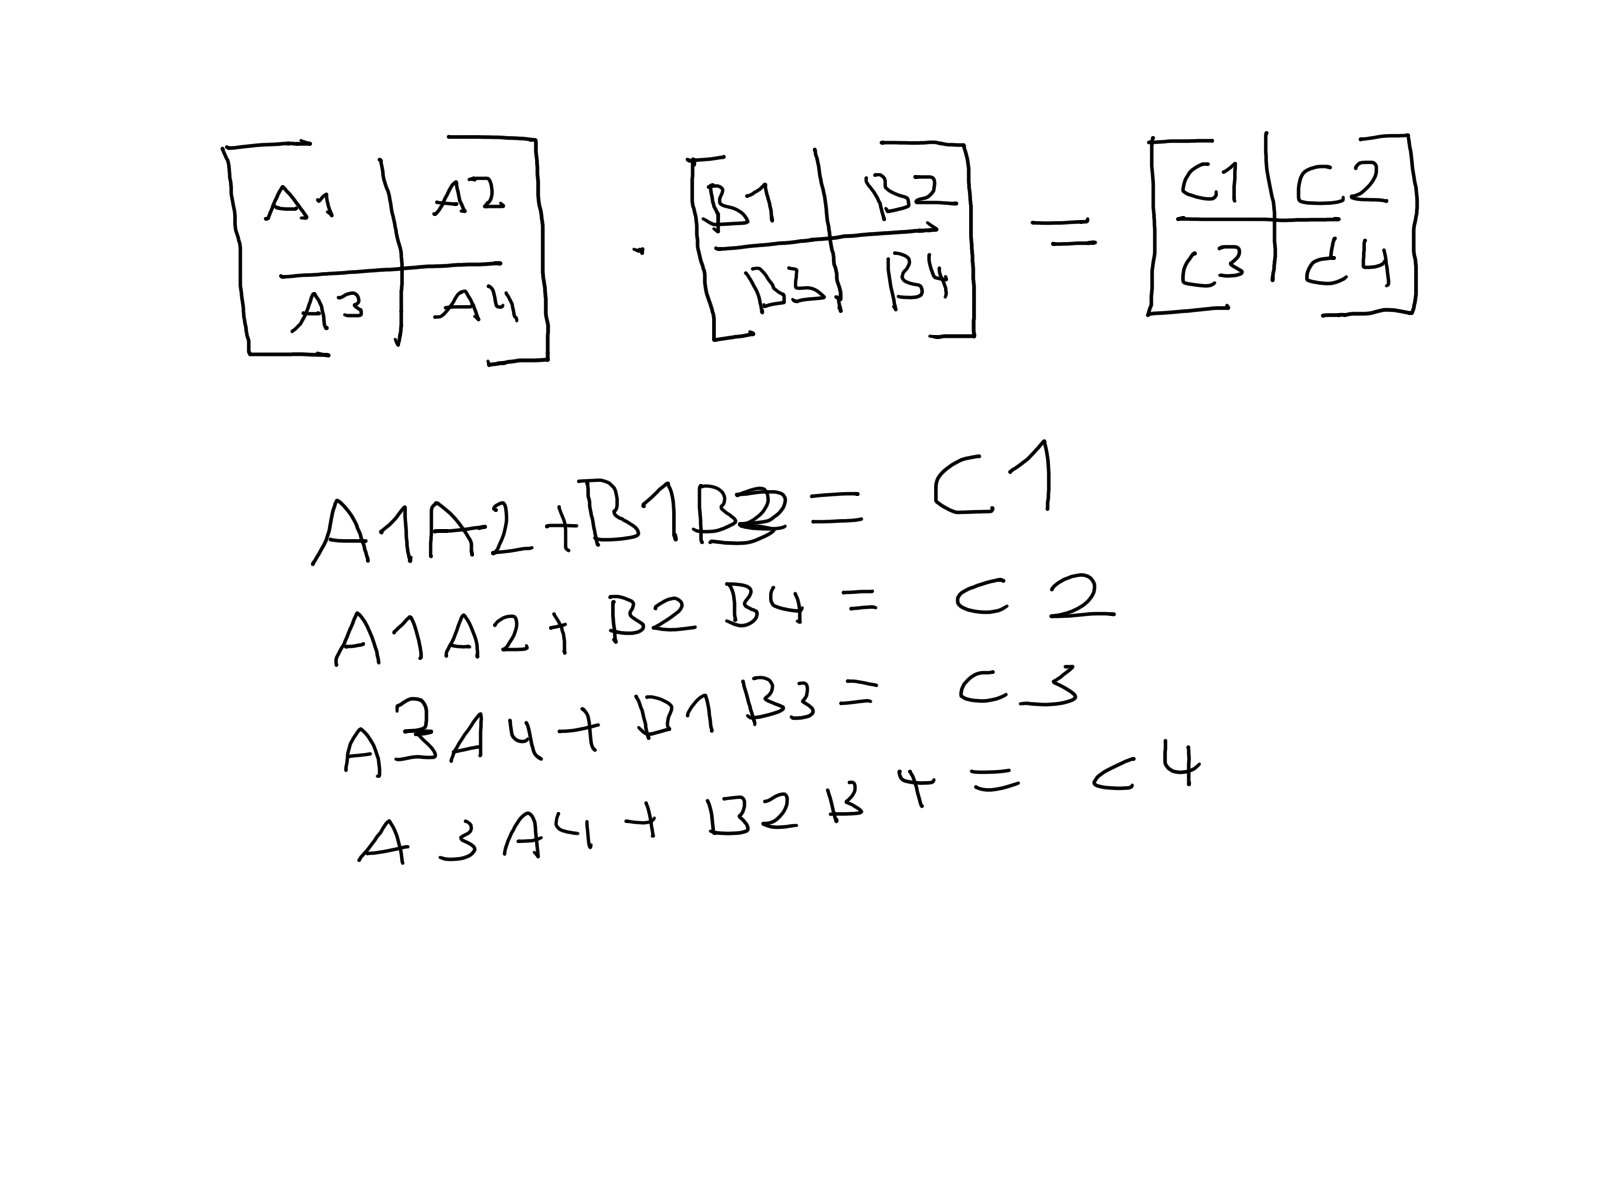 A1 A2 · B1 B2 = C1 C2
A3 A4 B3 B4 C3 C4
A1A2+B1B3= C1
A1A2+B2B4= C2
A3A4+B1B3= C3
A3A4+B2B4= C4